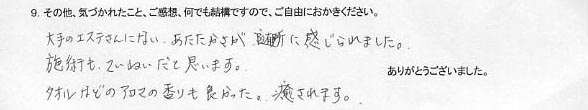 9. その他、気づかれたこと、ご感想、何でも結構ですので、ご自由におかきください。
大手のエステさんにない、あたたかさが に感じられました。
施術も、ていねいだと思います。
ありがとうございました。
タオルなどのアロマの香りも良かった。癒されます。